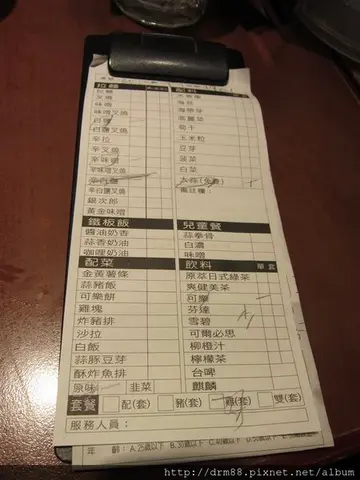 拉麵
配料
拉麵
叉燒
海苔
味噌
海帶芽
味噌叉燒
高麗菜
白濃
筍干
白濃叉燒
玉米粒
辛拉
豆芽
辛叉燒
菠菜
辛味噌
白菜
辛味噌叉燒
大蒜(免費)
辛白濃
辛白濃叉燒
銀次郎
黃金味噌
鐵板飯
兒童餐
醬油奶香
蒜拳骨
蒜香奶油
白濃
咖哩奶油
味噌
配菜
飲料
單 套
金黃薯條
原萃日式綠茶
蒜豬飯
爽健美茶
可樂餅
可樂
雞塊
芬達
炸豬排
雪碧
沙拉
可爾必思
白飯
柳橙汁
蒜豚豆芽
檸檬茶
酥炸魚排
台啤
原味
韭菜
麒麟
套餐
配(套)
豬(套)
雞(套)
雙(套)
服務人員:
年 齡: A.25歲以下 B.30歲以下
http://drm88.pixnet.net/album